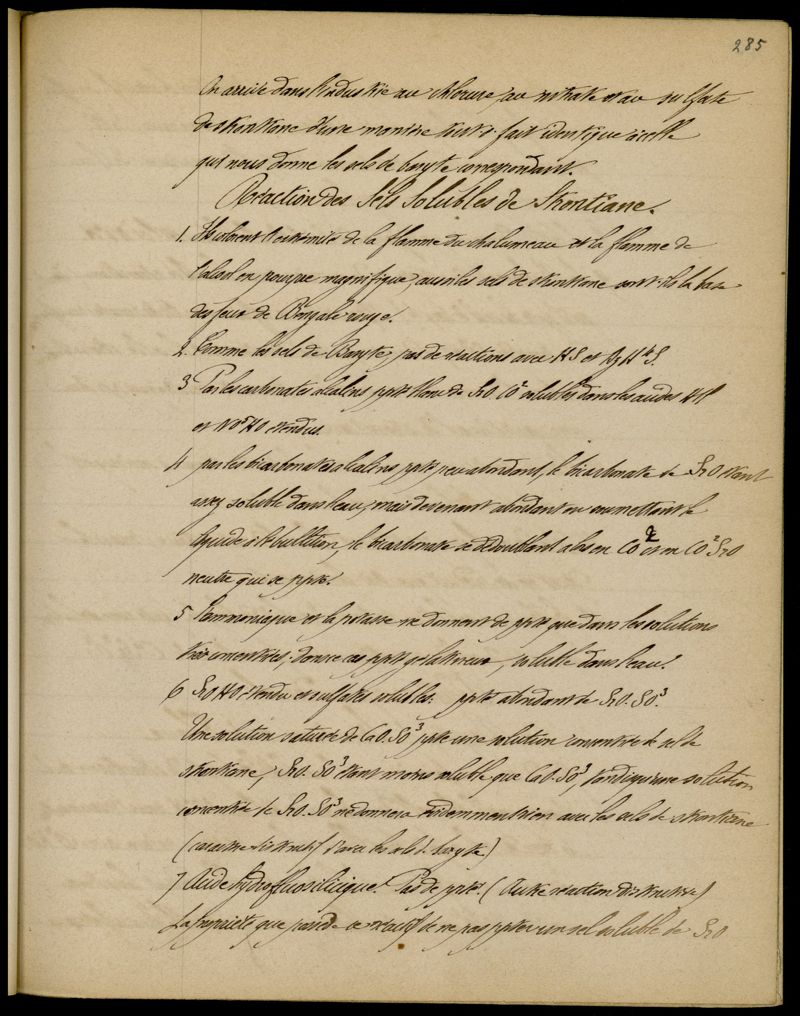 285
On arrive dans l'industrie au chlorure, au nitrate et au sulfate
de strontiane d'une manière tout à fait identique à celle
qui nous donne les sels de baryte correspondant.
Réaction des Sels Solubles de Strontiane.
1. Ils colorent l'extrémité de la flamme du chalumeau et la flamme de
l'alcool en pourpre magnifique, aussi les sels de strontiane sont-ils la base
des feux de Bengale rouge.
2. Comme les sels de Baryte, pas de réactions avec HS et AzH⁴S.
3 Par les carbonates alcalins ppté blanc de SrO CO² solubles dans les acides HCl
et NO⁵HO étendus.
4 par les bicarbonates alcalins ppté peu abondant, le bicarbonate de SrO étant
assez soluble dans l'eau, mais devenant abondant en soumettant le
liquide à l'ébullition, le bicarbonate se dédoublant alors en CO² et en CO² SrO
neutre qui se ppte.
5 L'ammoniaque et la potasse ne donnent de ppté que dans les solutions
très concentrées, dans ce cas ppté gélatineux, soluble dans l'eau.
6 SO³HO étendu et sulfates solubles. ppté abondant de SrO.SO³.
Une solution saturée de CaO.SO³ ppte une solution concentrée de sel de
strontiane, SrO.SO³ étant moins soluble que CaO.SO³, tandis qu'une solution
concentrée de SrO.SO³ ne donnera évidemment rien avec les sels de strontiane
(caractère distinctif d'avec les sels de baryte)
7 Acide hydrofluosilicique. Pas de ppté. (Autre réaction distinctive)
La propriété que possède ce réactif de ne pas ppter un sel soluble de SrO